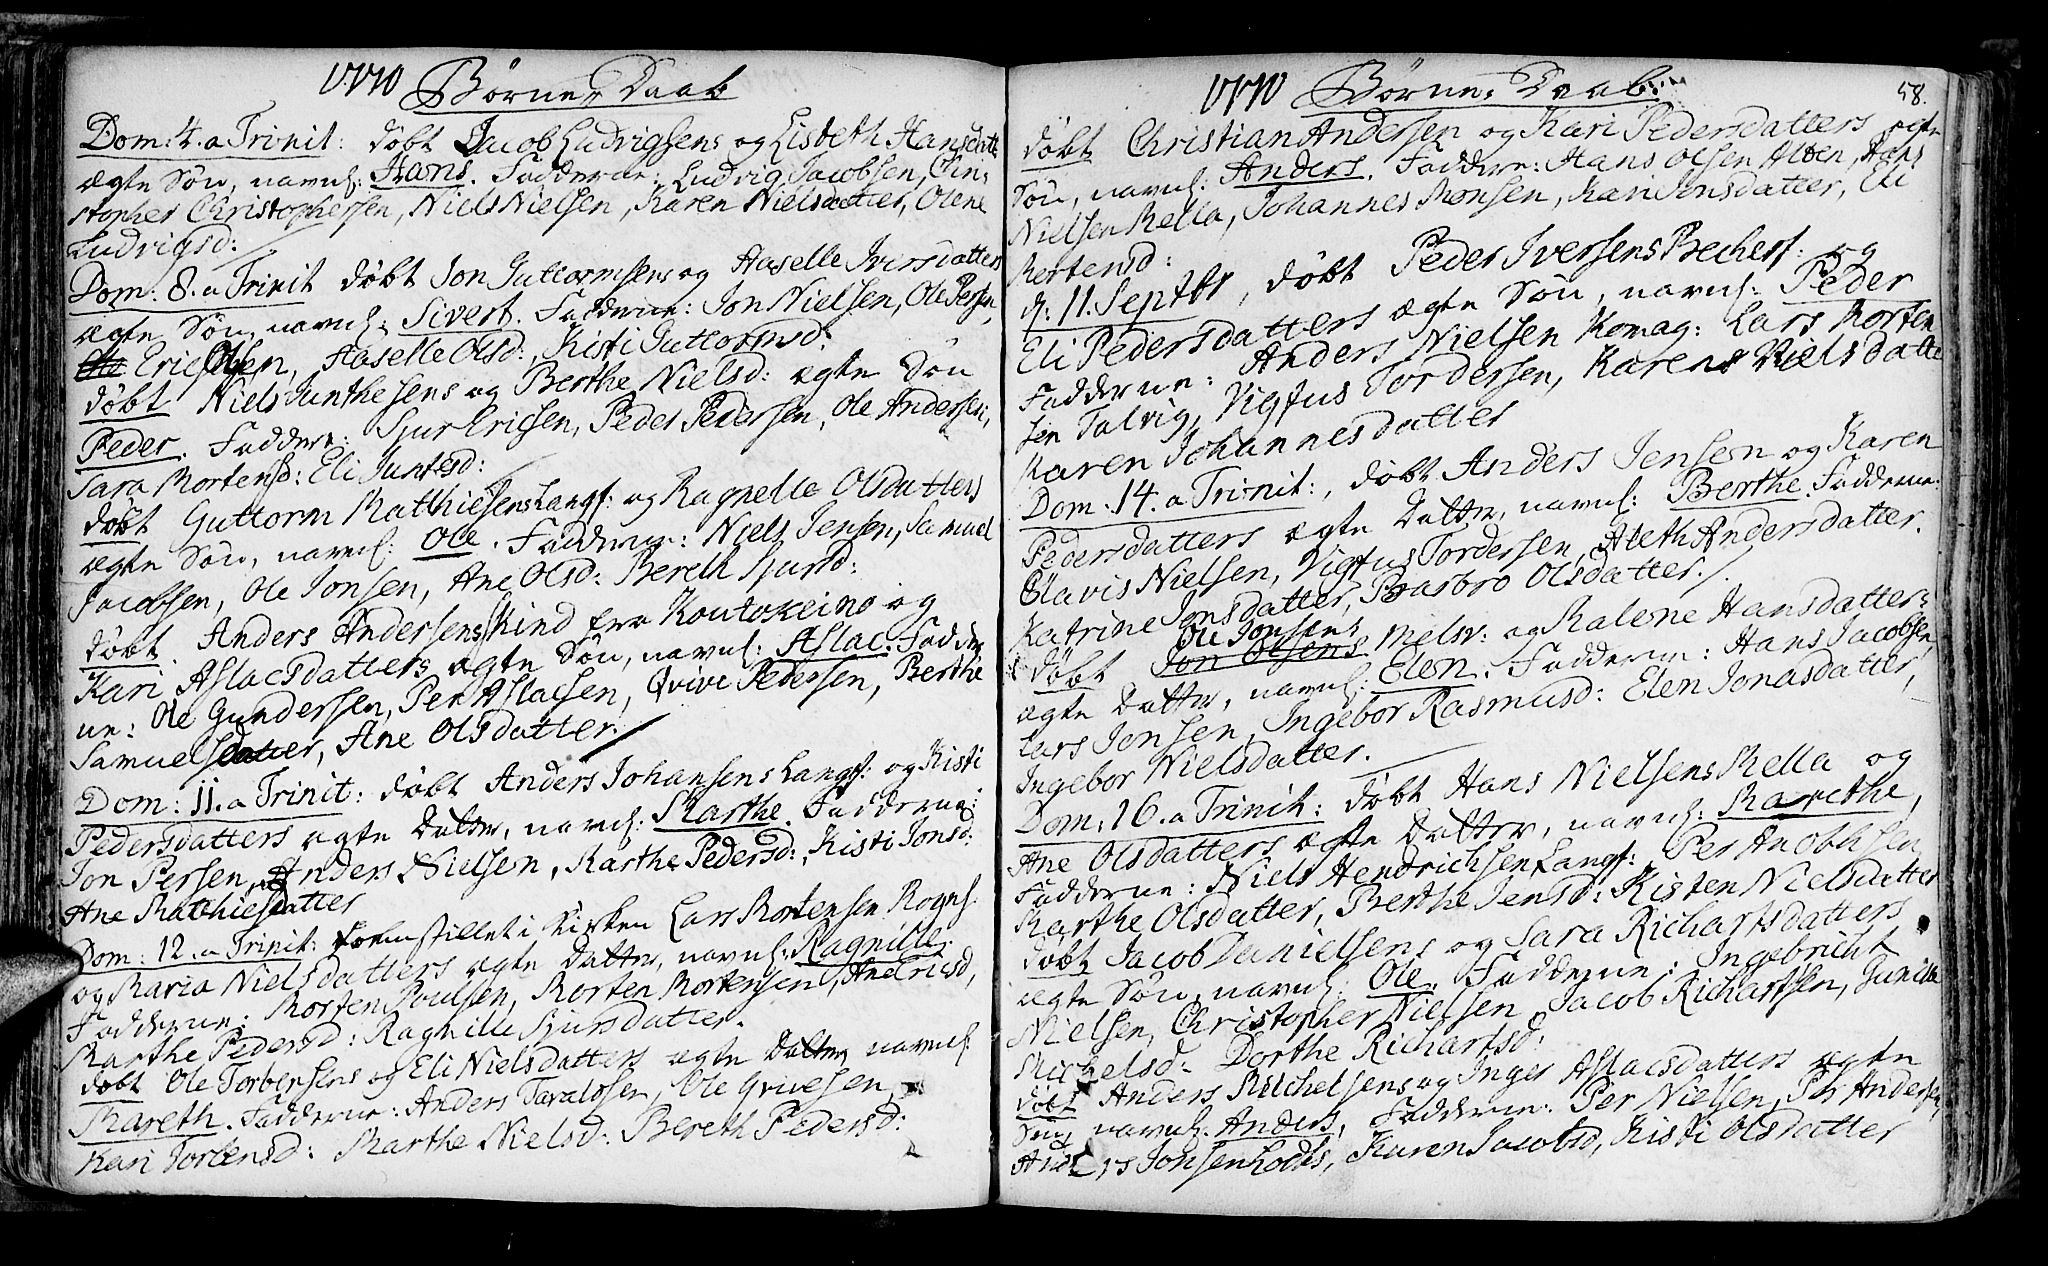 1770 Børne Daab
Dom: 4. a Trinit: døbt Jacob Ludvigsens og Lisbeth Hansdatt
ægte Søn, navnl: Hans. Fadderne: Ludvig Jacobsen, Chri-
stopher Christophersen, Niels Nielsen, Karen Nielsdatter, Olene
Ludvigsd:
Dom: 8. a Trinit døbt Jon Guttormsens og Haselle Iversdatters
ægte Søn, navnl. Sivert. Fadderne: Jon Nielsen, Ole Persen,
Eric Olsen, Haselle Olsd:, Kisti Guttormsd:
døbt Niels Junthesens og Berthe Nielsd: ægte Søn
Peder. Faddere: Sjur Ericsen, Peder Pedersen, Ole Andersen,
Sara Mortensd: Eli Juntesd:
døbt Guttorm Matthiesens Langf: og Ragnelle Olsdatters
ægte Søn, navnl: Ole. Fadderne: Niels Jensen, Samuel
Jacobsen, Ole Jonsen, Ane Olsd: Bereth Sjursd:
døbt. Anders Andersens Kind fra Koutokeino og
Kari Aslacsdatters ægte Søn, navnl: Aslac. Fadder
ne: Ole Gundersen, Per Aslacsen, Qvive Pedersen, Berthe
Samuelsdatter, Ane Olsdatter.
Dom: 11. a Trinit: døbt Anders Johansens Langf: og Kisti
Pedersdatters ægte Datter, navnl: Marthe. Fadderne:
Jon Persen, Anders Nielsen, Marthe Pedersd:, Kisti Jonsd:
Ane Matthiesdatter
Dom: 12. a Trinit: fremstillet i Kirken Lars Mortensen Rognf.
og Maria Nielsdatters ægte Datter, navnl: Ragnille.
Fadderne: Morten Poulsen, Morten Mortensen, Ane Ericsd,
Marthe Pedersd: Ragnille Sjursdatter.
døbt Ole Torbensens og Eli Nielsdatters ægte Datter navnl:
Mareth. Fadderne: Anders Taraldsen, Ole Qvivesen,
Kari Torbensd: Marthe Nielsd: Bereth Pedersd:
1770 Børne Daab: 58.
døbt Christian Andersen og Kari Pedersdatters ægte
Søn, navnl: Anders. Faddere: Hans Olsen Alten, Hans
Nielsen Mella, Johannes Monsen, Kari Jonsdatter, Eli
Mortensd:
d: 11. Septbr, døbt Peder Iversens Becherf: og
Eli Pedersdatters ægte Søn, navnl: Peder
Fadderne: Anders Nielsen Komag: Lars Morten
sen Talvig, Vigfus Tordersen, Karen Nielsdatte
Karen Johannesdatter
Dom: 14. a Trinit:, døbt Anders Jensen og Karen
Pedersdatters ægte Datter, navnl: Berthe. Fadderne:
Olavis Nielsen, Vigfus Tordersen, Aleth Andersdatter.
Katrine Jonsdatter, Barbro Olsdatter.
Ole Jonsens
døbt Jon Olsens Melsv: og Malene Hansdatters
ægte Datter, navnl: Elen. Fadderne: Hans Jacobsen,
Lars Jonsen, Ingebor Rasmusd: Elen Jonasdatter,
Ingebor Nielsdatter.
Dom: 16. a Trinit: døbt Hans Nielsens Mella og
Ane Olsdatters ægte Datter, navnl: Marethe,
Fadderne: Niels Hendrichsen Langf:
Marthe Olsdatter, Berthe Jensd: Kisten Nielsdatter
døbt Jacob Danielsens og Sara Richartsdatters
ægte Søn, navnl: Ole. Fadderne: Ingebricht
Nielsen, Christopher Nielsen, Jacob Richartsen,
Michelsd: Dorthe Richartsd:
døbt Anders Michelsens og Inger Aslacsdatters ægte
Søn, navnl. Anders, Fadderne: Per Nielsen, Per Andersen,
Anders Jonsen Karen Jacobsd, Kisti Olsdatter